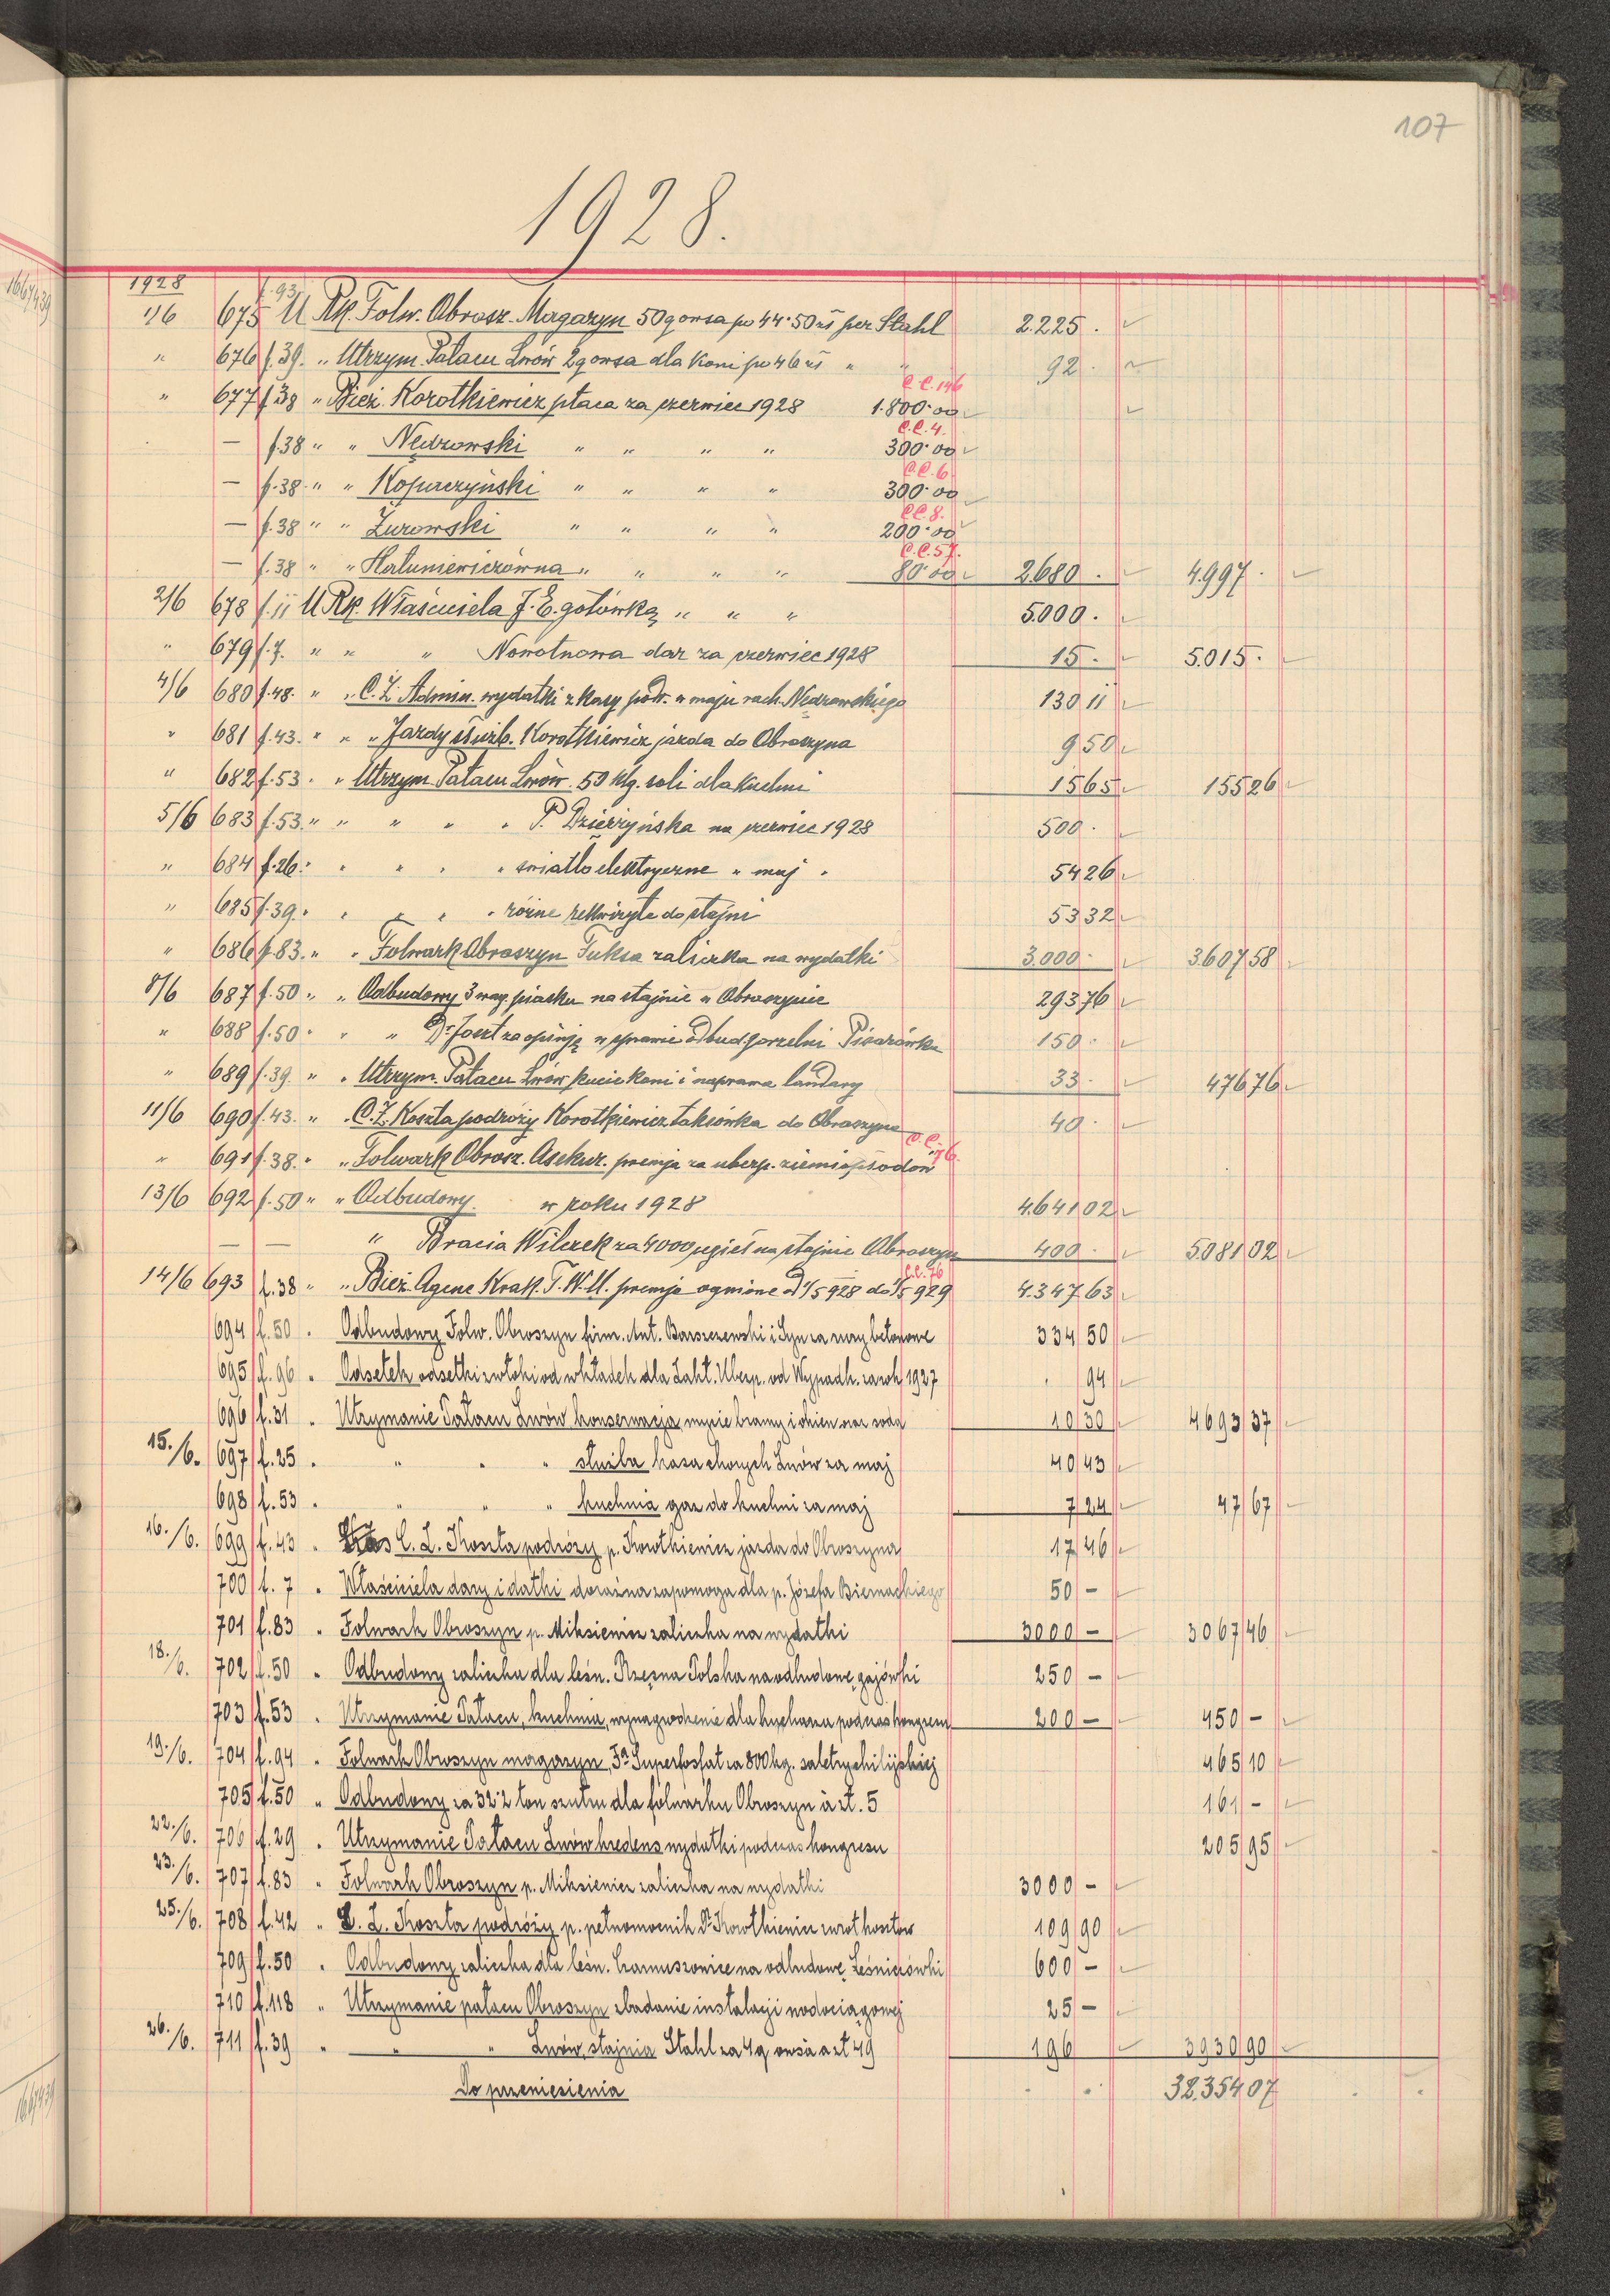 107
1928.
1928
1/6 675 f. 93 U Rk. Folw. Obrosz. Magazyn 50 q owsa po 44·50 zł per Stahl 2.225.
" 676 f. 39. " Utrzym. Pałacu Lwów 2 q owsa dla koni po 46 zł " " 92.
C.C. 146
" 677 f 38 " Bież. Korotkiewicz płaca za czerwiec 1928 1.800·00
C.C. 4.
— f. 38 " " Nędzowski " " " " 300·00
C.C. 6.
— f. 38 " " Kopaczyński " " " " 300·00
C.C. 8.
— f. 38 " " Żurowski " " " " 200·00
C.C. 57.
— f. 38 " " Haluniewiczówna " " " " 80·00 2.680. 4.997.
2/6 678 f. 11 U Rk. Właściciela J. E. gotówką " " " 5.000.
" 679 f. 7. " " " Nowotnowa dar za czerwiec 1928 15. 5.015.
4/6 680 f. 48. " " C. Z. Admin. wydatki z kasy podr. w maju rach. Nędzowskiego 130 11
" 681 f. 43. " " " Jazdy służb. Korotkiewicz jazda do Obroszyna 9 50
" 682 f. 53. " Utrzym. Pałacu Lwów. 50 klg. soli dla kuchni 15 65 155 26
5/6 683 f. 53. " " " " " P. Dzierżyńska na czerwiec 1928 500.
" 684 f. 26. " " " " " światło elektryczne " maj " 54 26
" 685 f. 39. " " " " " różne rekwizyta do stajni 53 32
" 686 f. 83. " " Folwark Obroszyn Fuksa zaliczka na wydatki 3.000. 3.607 58
8/6 687 f. 50 " " Odbudowy 3 wag. piasku na stajnie w Obroszynie 293 76
" 688 f. 50 " " " Dr. Joszt za opinję w sprawie odbud. gorzelni Pisarówka 150.
" 689 f. 39. " " Utrzym. Pałacu Lwów kucie koni i naprawa landary 33. 476 76
11/6 690 f. 43. " " C. Z. Koszta podróży Korotkiewicz taksówka do Obroszyna 40.
C.C. 76.
" 691 f. 38. " " Folwark Obrosz. Asekur. premja za ubezp. ziemiopłodów
13/6 692 f. 50 " " Odbudowy. w roku 1928 4.641 02
— — " Bracia Wilczek za 4000 cegieł na stajnie Obroszyn 400. 5.081 02
C.C. 76
14/6 693 f. 38 " " Bież. Agenc. Krak. T. W. U. premja ogniowe od 1/5 928 do 1/5 929 4.347 63
694 f. 50 " Odbudowy Folw. Obroszyn firm. Ant. Barszczewski i Syn za rury betonowe 334 50
695 f. 96 " Odsetek odsetki zwłoki od wkładek dla Zakł. Ubezp. od Wypadk. za rok 1927 . 94
696 f. 31 " Utrzymanie Pałacu Lwów konserwacja mycie bramy i okien oraz soda 10 30 4693 37
15./6. 697 f. 25 " " " " służba kasa chorych Lwów za maj 40 43
698 f. 53 " " " " kuchnia gaz do kuchni za maj 7 24 47 67
16./6. 699 f. 43 " C. Z. Koszta podróży p. Korotkiewicz jazda do Obroszyna 17 46
700 f. 7 " Właściciela dary i datki doraźna zapomoga dla p. Józefa Biernackiego 50 –
701 f. 83 " Folwark Obroszyn p. Miksiewicz zaliczka na wydatki 3000 – 3067 46
18./6. 702 f. 50 " Odbudowy zaliczka dla leśn. Rzęsna Polska na odbudowę gajówki 250 –
703 f. 53 " Utrzymanie Pałacu, kuchnia, wynagrodzenie dla kucharza podczas kongresu 200 – 450 –
19./6. 704 f. 94 " Folwark Obroszyn magazyn, Fa. Superfosfat za 800 kg. saletry chilijskiej 465 10
705 f. 50 " Odbudowy za 32·2 ton szutru dla folwarku Obroszyn à zł. 5 161 –
22./6. 706 f. 29 " Utrzymanie Pałacu Lwów kredens wydatki podczas kongresu 205 95
23./6. 707 f. 83 " Folwark Obroszyn p. Miksiewicz zaliczka na wydatki 3000 –
25./6. 708 f. 42 " C. Z. Koszta podróży p. pełnomocnik Dr. Korotkiewicz zwrot kosztów 109 90
709 f. 50 " Odbudowy zaliczka dla leśn. na odbudowę Leśniczówki 600 –
710 f. 118 " Utrzymanie pałacu Obroszyn zbadanie instalacji wodociągowej 25 –
26./6. 711 f. 39 " " " Lwów, stajnia Stahl za 4 q owsa a zł 49 196 3930 90
Do przeniesienia 32.354 07